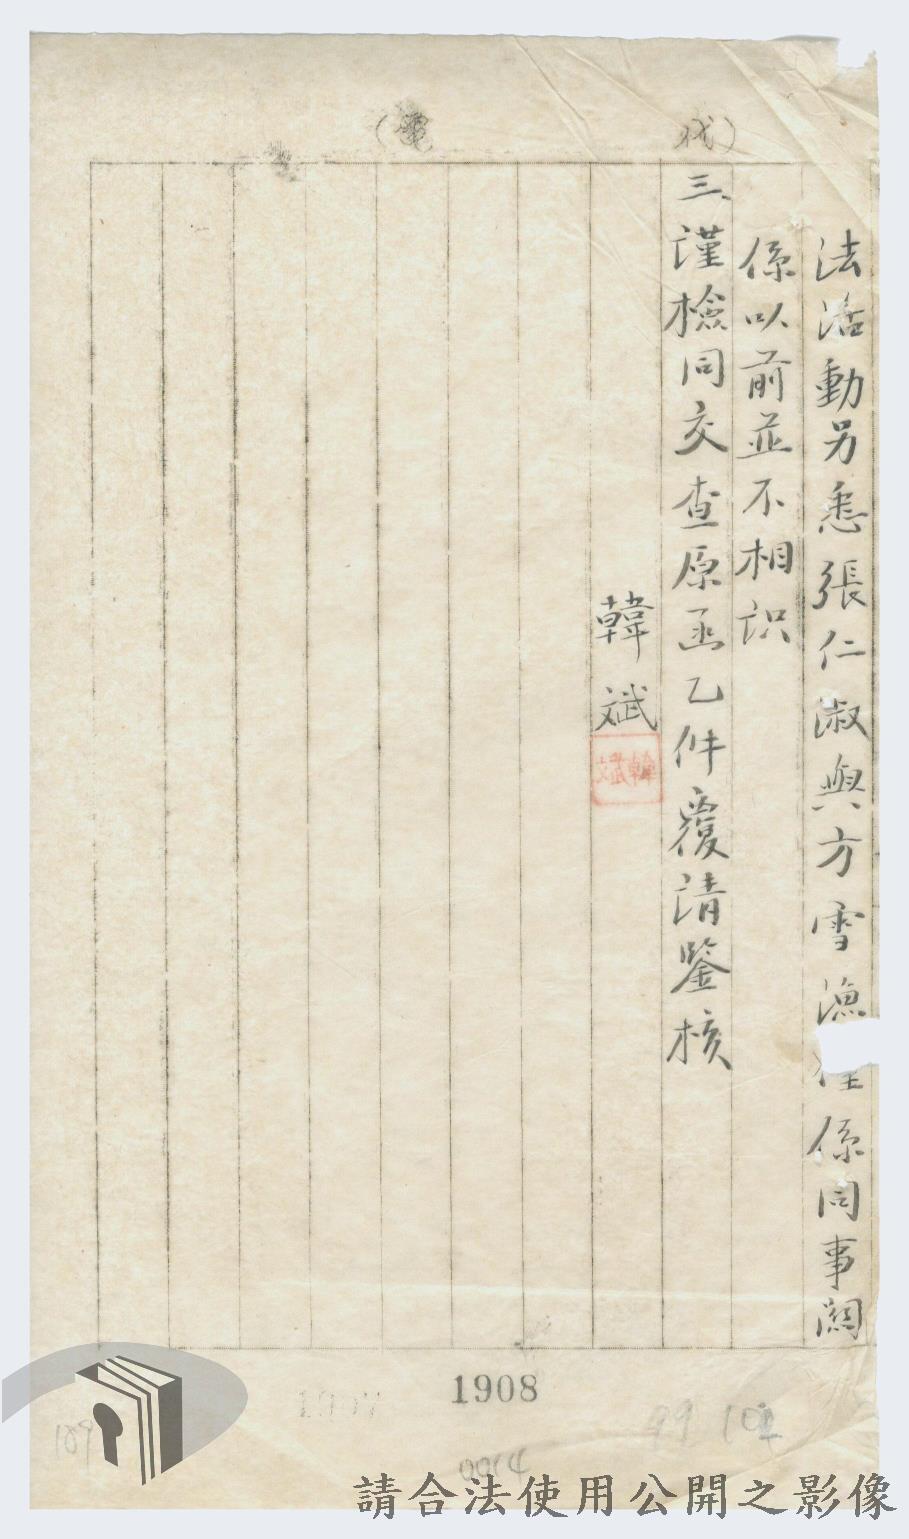 (代電)
法活動另悉張仁淑與方雪漁僅係同事關
係以前並不相识
三、谨檢同交查原函乙件覆请鑒核
韓斌
韓斌
1908
109
99 102
0014
請合法使用公開之影像